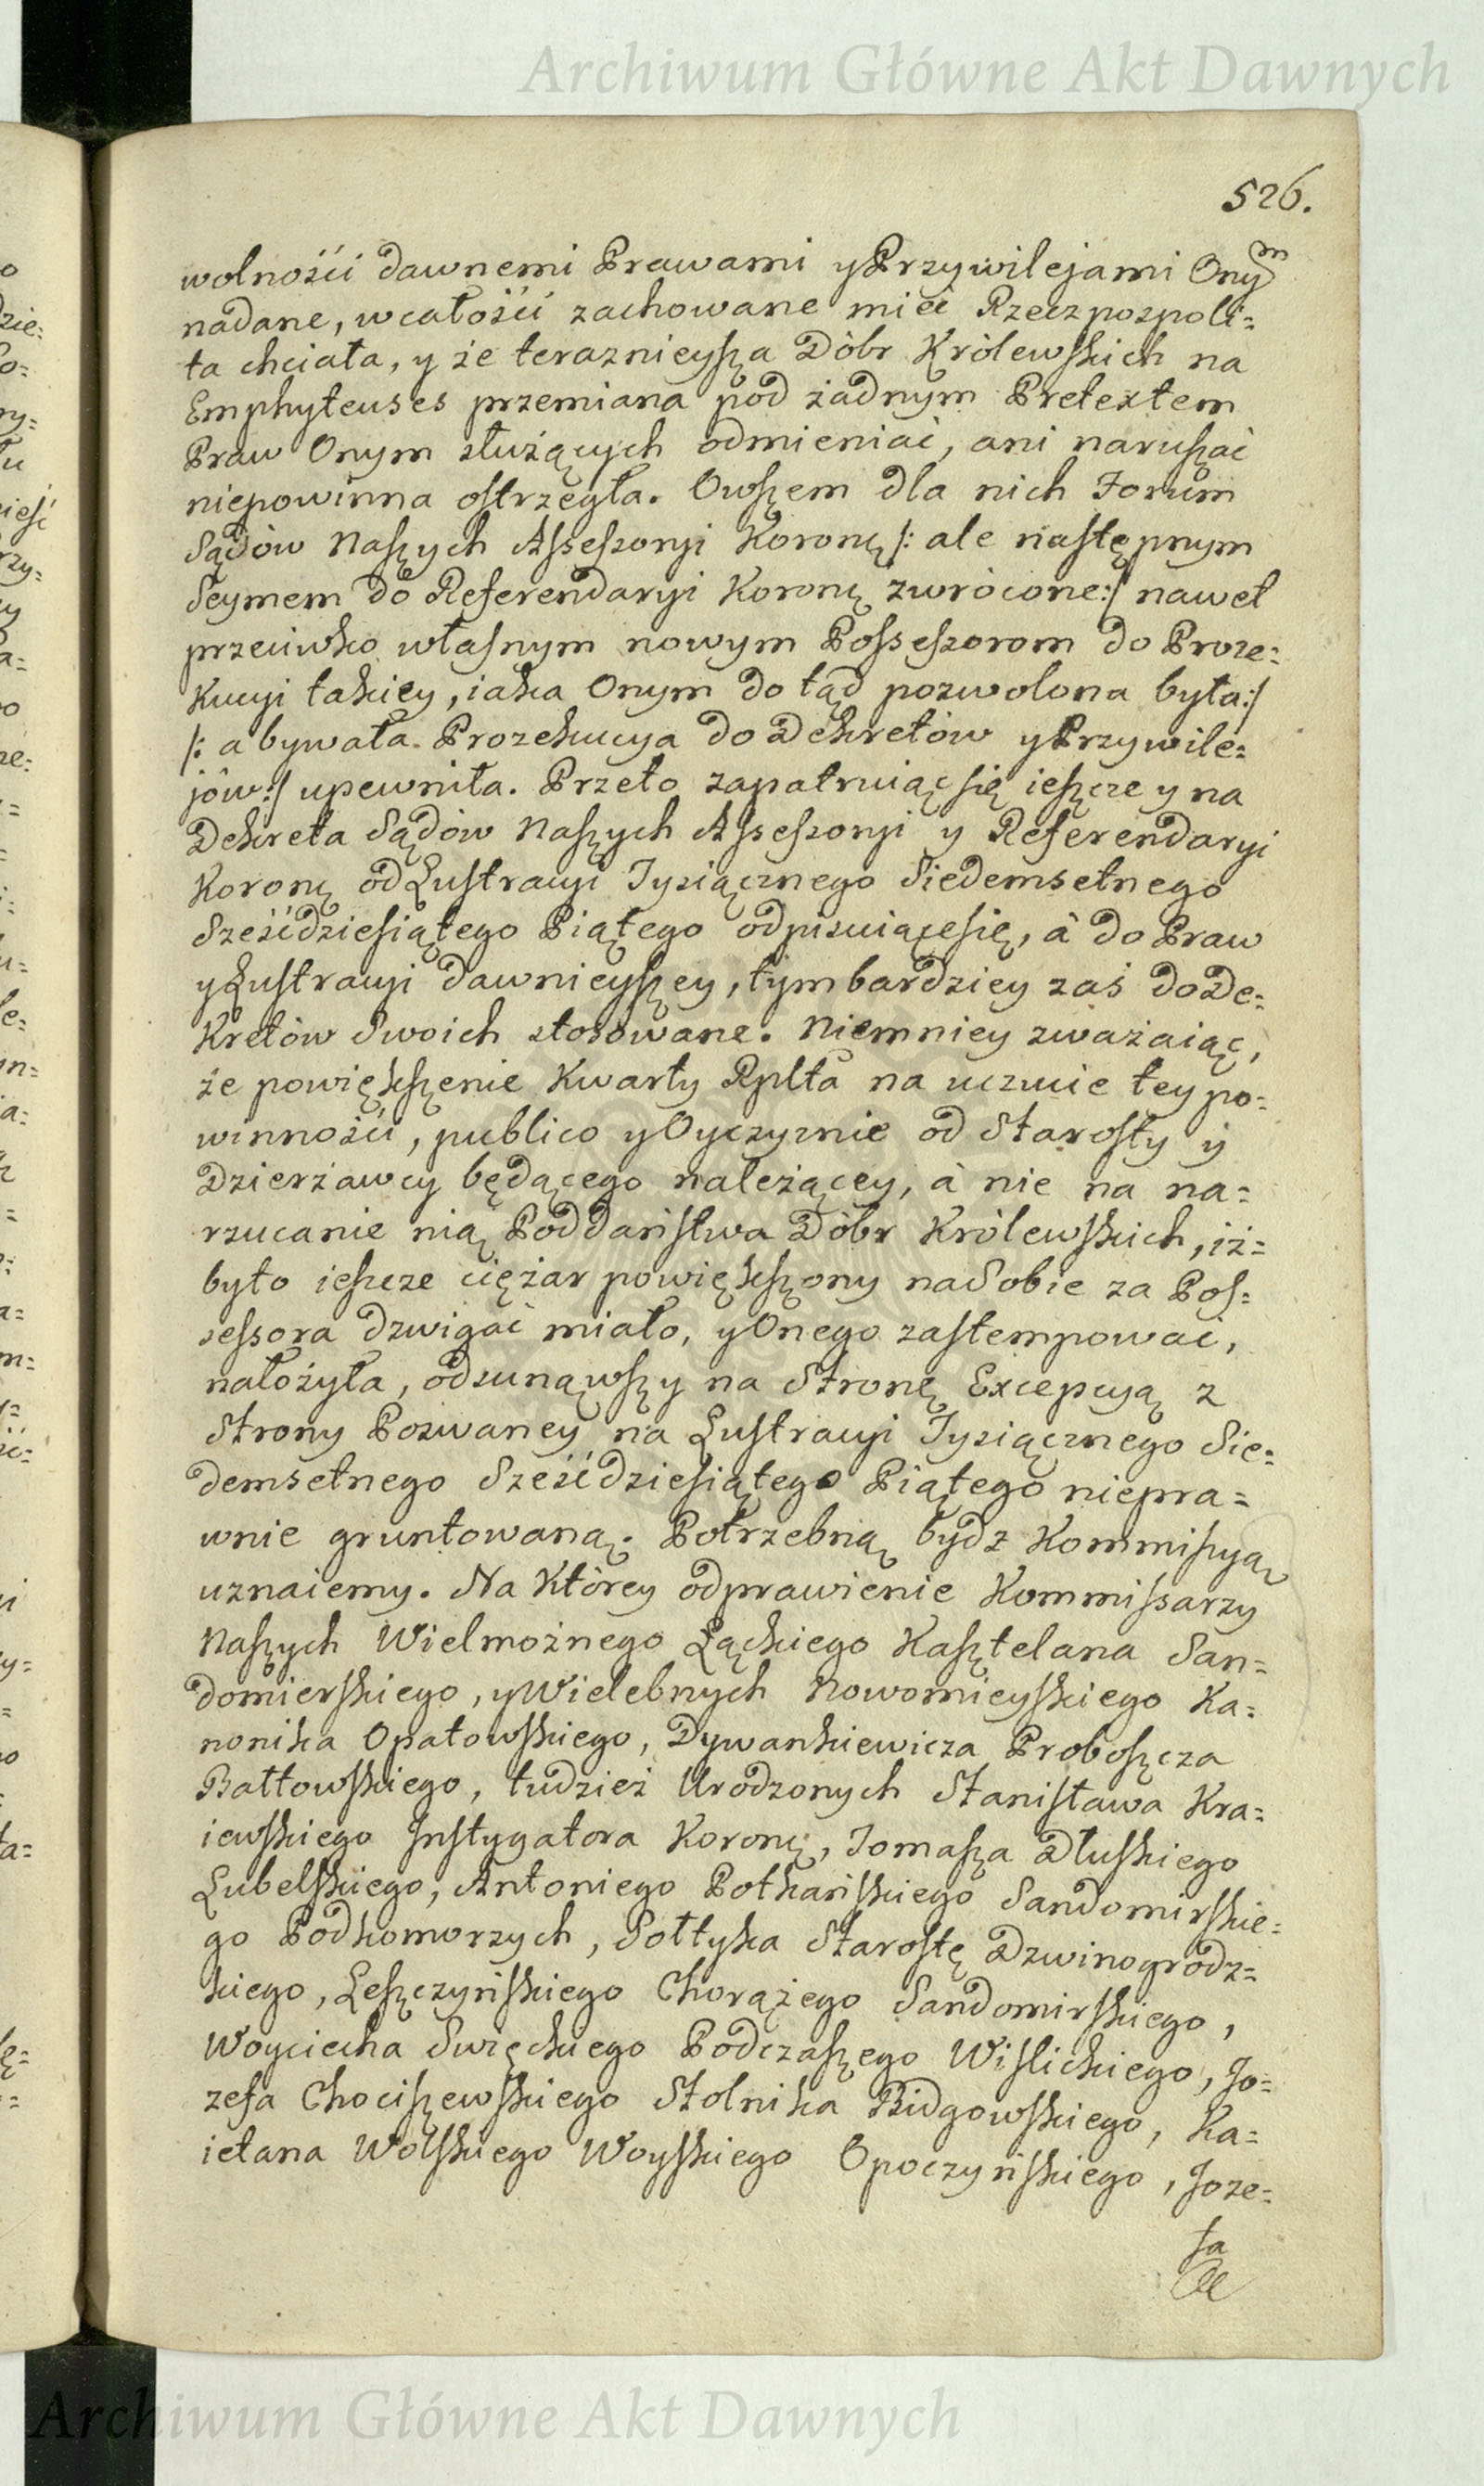 Archiwum Główne Akt Dawnych
526.
wolności dawnemi Prawami y Przywilejami Onym
nadane, wcałości zachowane mieć Rzeczpospoli=
ta chciała, y że teraznieysza Dóbr Królewskich na
Emphyteuses przemiana pod żadnym Pretextem
Praw Onym służących odmieniać, ani naruszać
niepowinna ostrzegła. Owszem dla nich Forum
Sądów Naszych Assessoryi Koronę /: ale następnym
Seymem do Referendaryi Koronę zwrócone :/ nawet
przeciwko własnym nowym Possessorom do Proze=
kucyi takiey, iaka Onym do tąd pozwolona była :/
/: a bywała Prozekucya do Dekretów y Przywile=
jów :/ upewniła. Przeto zapatruiąc się ieszcze y na
Dekreta Sądów Naszych Assessoryi y Referendaryi
Koronę od Lustracyi Tysiącznego Siedemsetnego
Sześćdziesiątego Piątego odpisuiące się, à do Praw
y Lustracyi dawnieyszey, tym bardziey zaś do De=
kretów Swoich stosowane. Niemniey zważaiąc,
że powiększenie Kwarty Rplta na uczucie tey po=
winności, publico y Oyczyznie od Starosty y
Dzierżawcy będącego należącey, à nie na na=
rzucanie nią Poddaństwa Dóbr Królewskich, iż=
było ieszcze ciężar powiększony na Sobie za Pos=
sessora dzwigać miało, y Onego zastempować,
nałożyła, odsunąwszy na Stronę Excepcyą z
Strony Pozwaney na Lustracyi Tysiącznego Sie=
demsetnego Sześćdziesiątego Piątego niepra=
wnie gruntowaną. Potrzebną bydz Kommissyą
uznaiemy. Na Którey odprawienie Kommissarzy
Naszych Wielmożnego Łąckiego Kasztelana San=
domierskiego, y Wielebnych Nowomieyskiego Ka=
nonika Opatowskiego, Dywankiewicza Proboszcza
Bałtowskiego, tudzież Urodzonych Stanisława Kra=
iewskiego Instygatora Koronę, Tomasza Dłuskiego
Lubelskiego, Antoniego Potkańskiego Sandomirskie=
go Podkomorzych, Sołtyka Starostę Dzwinogrodz=
kiego, Leszczyńskiego Chorążego Sandomirskiego,
Woyciecha Swięckiego Podczaszego Wislickiego, Jo=
zefa Chociszewskiego Stolnika Bidgowskiego, Ka=
ietana Wolskiego Woyskiego Opoczyńskiego, Joze=
fa
Archiwum Główne Akt Dawnych